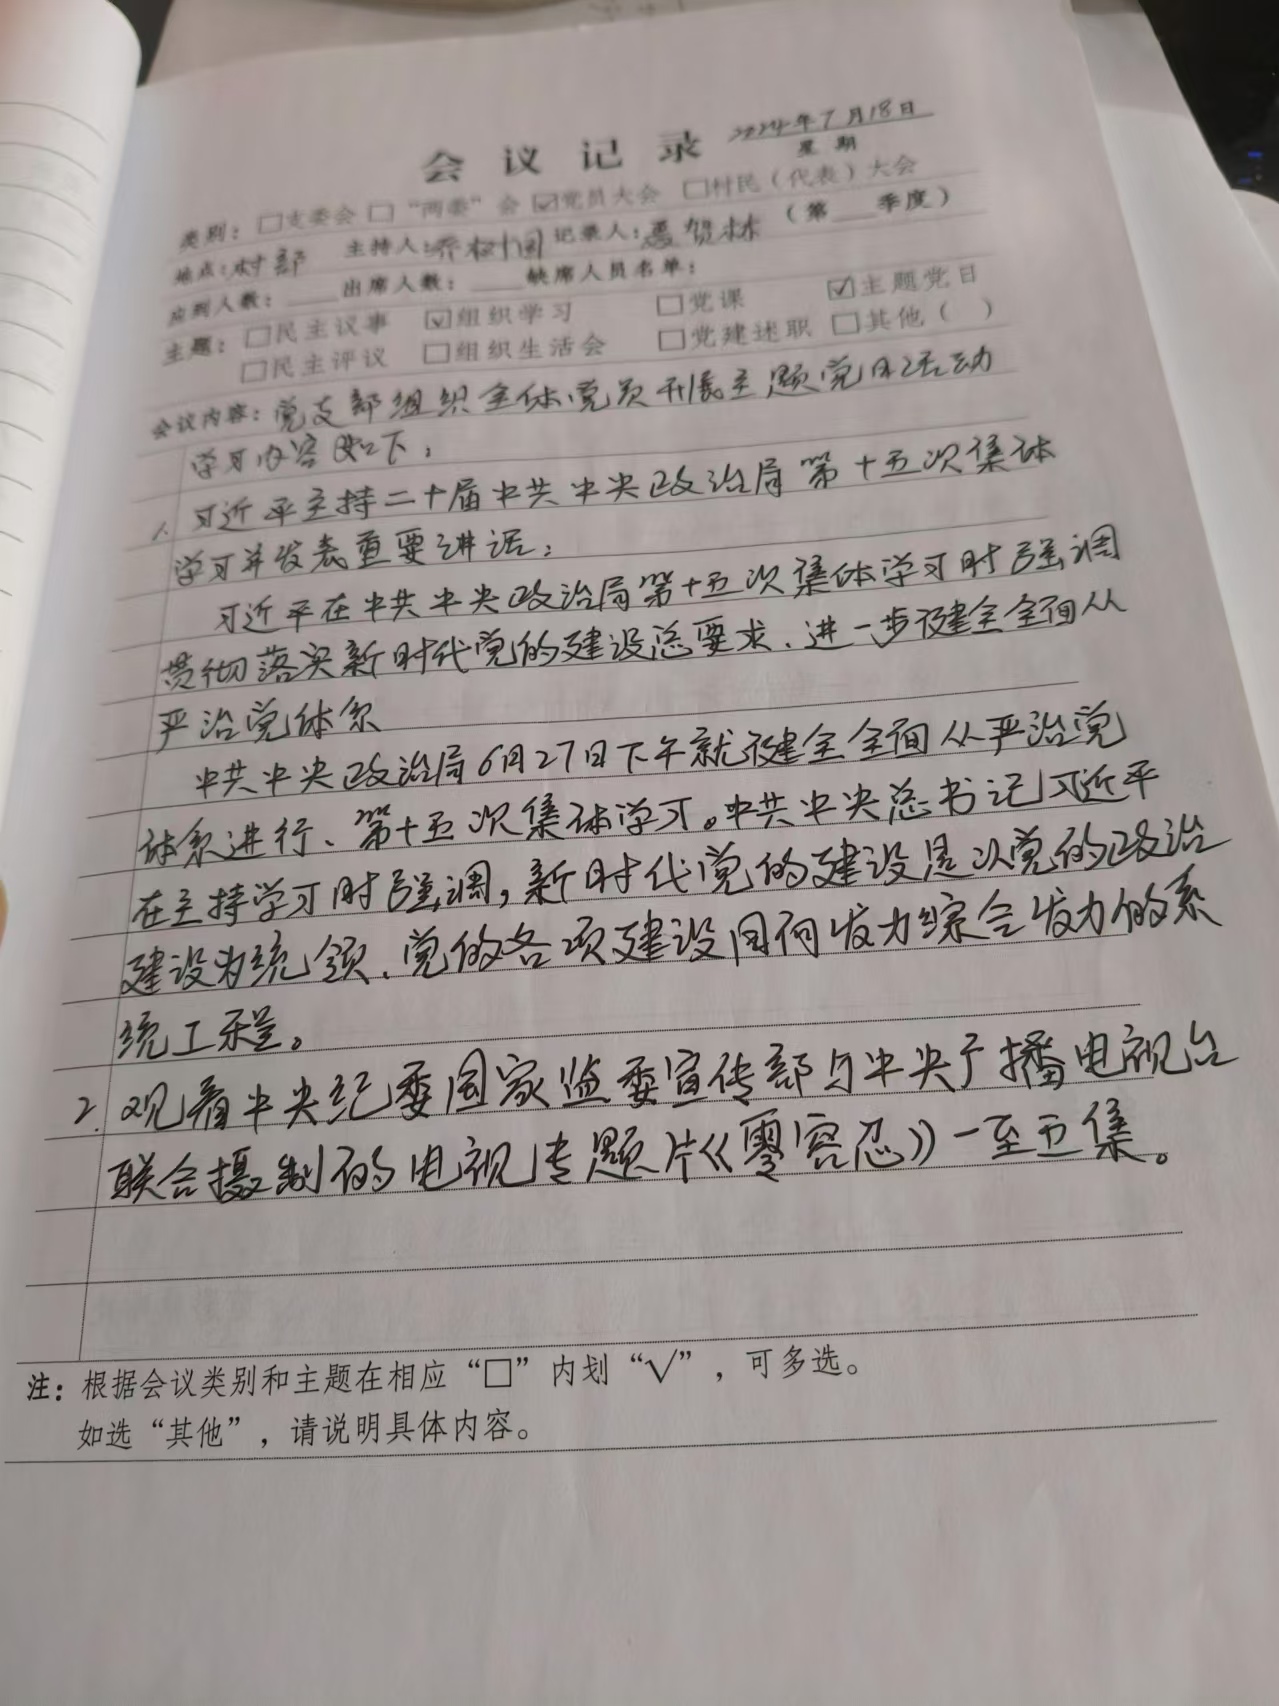 会议记录 2024年7月18日
星期
类别：□支委会 □“两委”会 ☑党员大会 □村民（代表）大会
地点：村部 主持人：乔 国 记录人： 贺林 （第 季度）
应到人数： 出席人数： 缺席人员名单：
主题：□民主议事 ☑组织学习 □党课 ☑主题党日
□民主评议 □组织生活会 □党建述职 □其他（ ）
会议内容：党支部组织全体党员开展主题党日活动
学习内容如下：
1. 习近平主持二十届中共中央政治局第十五次集体
学习并发表重要讲话：
习近平在中共中央政治局第十五次集体学习时强调
贯彻落实新时代党的建设总要求、进一步健全全面从
严治党体系
中共中央政治局6月27日下午就健全全面从严治党
体系进行、第十五次集体学习。中共中央总书记习近平
在主持学习时强调，新时代党的建设是以党的政治
建设为统领、党的各项建设同向发力综合发力的系
统工程。
2. 观看中央纪委国家监委宣传部与中央广播电视台
联合摄制的电视专题片《零容忍》一至五集。
注：根据会议类别和主题在相应“□”内划“√”，可多选。
如选“其他”，请说明具体内容。